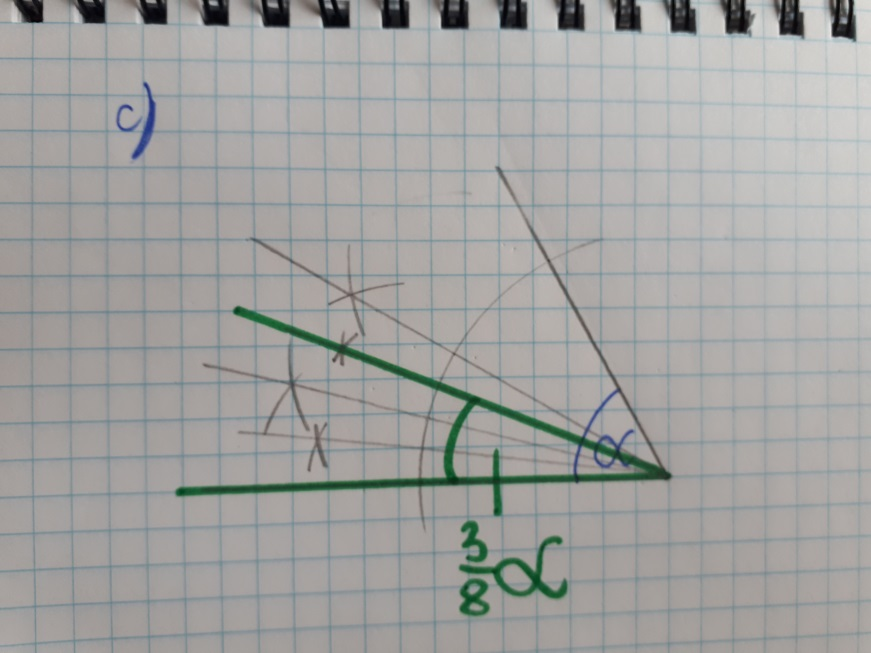 c)
α
3/8 α